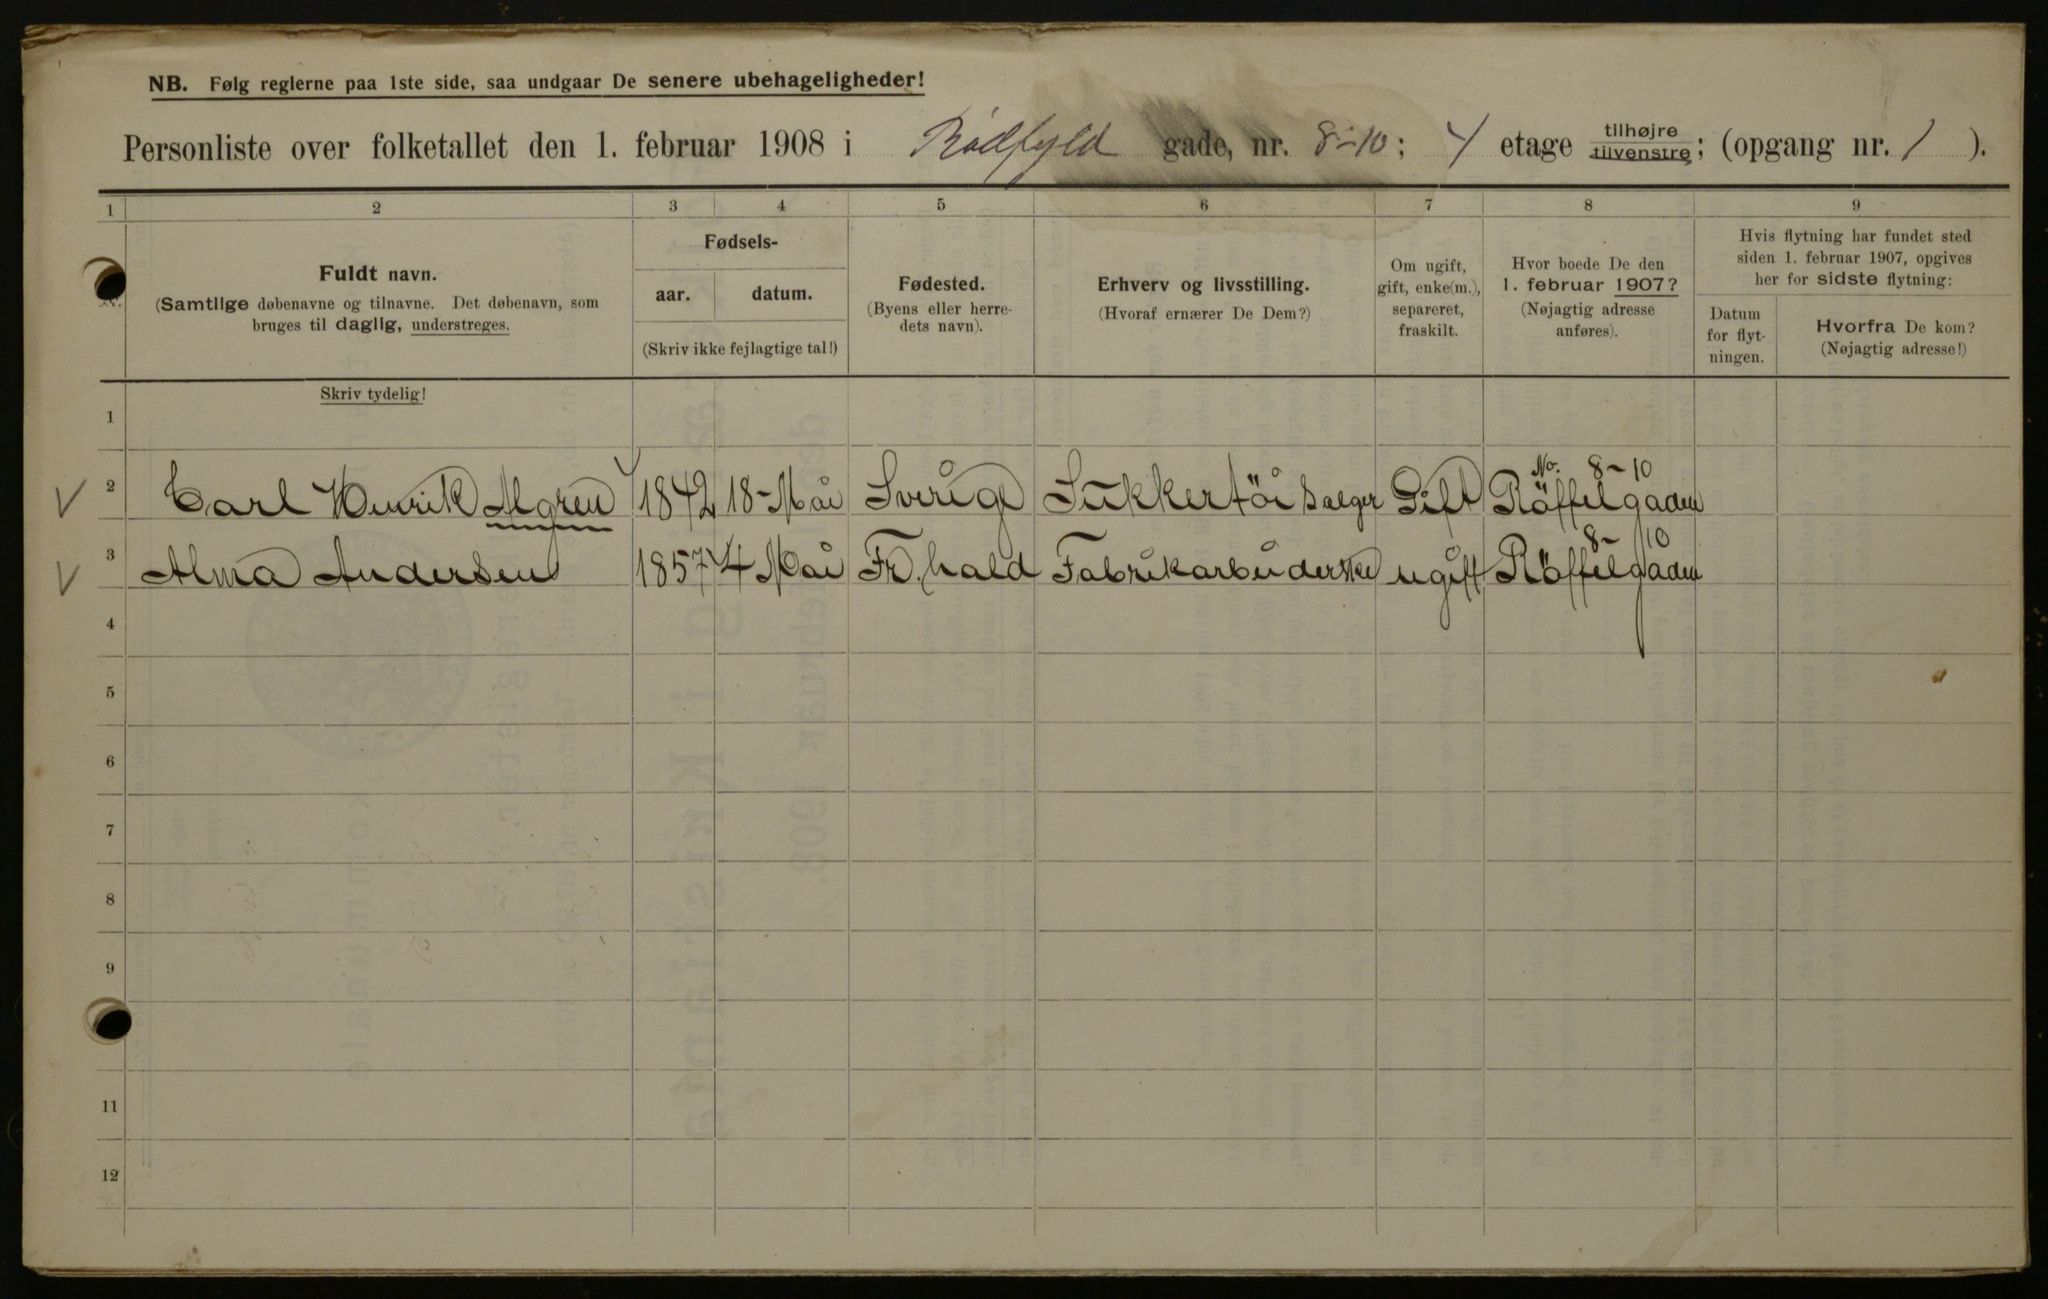 NB. Følg reglerne paa 1ste side, saa undgaar De senere ubehageligheder!
Personliste over folketallet den 1. februar 1908 i Rødfyld gade, nr. 8-10; 4 etage tilhøjre tilvenstre; (opgang nr. 1 ).
1 2 3 4 5 6 7 8 9
Nr.
Fuldt navn.
(Samtlige døbenavne og tilnavne. Det døbenavn, som
bruges til daglig, understreges.
Fødsels-
aar. datum.
(Skriv ikke fejlagtige tal!)
Fødested.
(Byens eller herre-
dets navn).
Erhverv og livsstilling.
(Hvoraf ernærer De Dem?)
Om ugift,
gift, enke(m.),
separeret,
fraskilt.
Hvor boede De den
1. februar 1907?
(Nøjagtig adresse
anføres).
Hvis flytning har fundet sted
siden 1. februar 1907, opgives
her for sidste flytning:
Datum
for flyt-
ningen.
Hvorfra De kom?
(Nøjagtig adresse!)
Skriv tydelig!
1
No. 8-10
2 Carl Henrik Algren 1842 18-Mai Sverige Sukkertöi Sælger Gift Röffelgaden
8-10
3 Alma Andersen 1857 4 Mai Fr.hald Fabrikarbeiderske ugift Röffelgaden
4
5
6
7
8
9
11
12